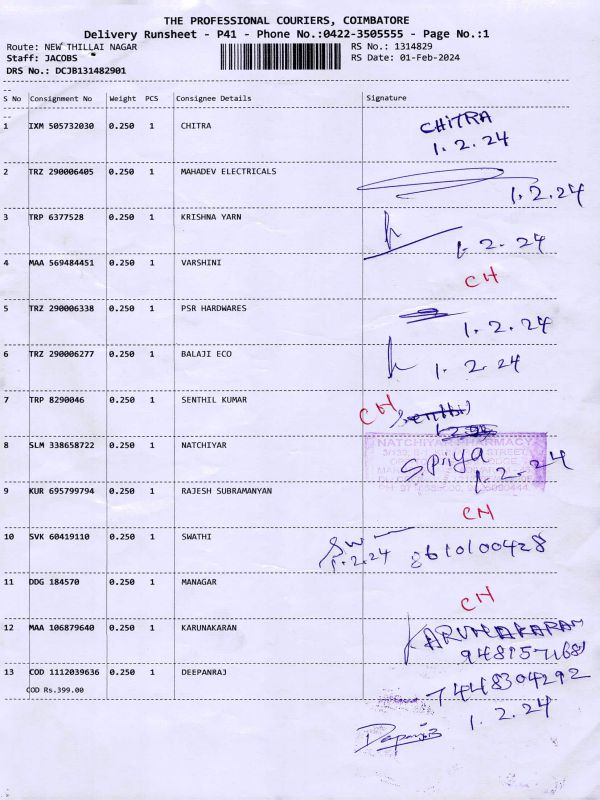 THE PROFESSIONAL COURIERS, COIMBATORE
Delivery Runsheet - P41 - Phone No.:0422-3505555 - Page No.:1
Route: NEW THILLAI NAGAR RS No.: 1314829
Staff: JACOBS RS Date: 01-Feb-2024
DRS No.: DCJB131482901
S No Consignment No Weight PCS Consignee Details Signature
1 IXM 505732030 0.250 1 CHITRA CHITRA
1.2.24
2 TRZ 290006405 0.250 1 MAHADEV ELECTRICALS
1.2.24
3 TRP 6377528 0.250 1 KRISHNA YARN
1.2.24
4 MAA 569484451 0.250 1 VARSHINI CH
5 TRZ 290006338 0.250 1 PSR HARDWARES 1.2.24
6 TRZ 290006277 0.250 1 BALAJI ECO 1.2.24
7 TRP 8290046 0.250 1 SENTHIL KUMAR CH Senthil
NATCHIYAR PHARMACY
8 SLM 338658722 0.250 1 NATCHIYAR S Priya
1.2.24
9 KUR 695799794 0.250 1 RAJESH SUBRAMANYAN CH
10 SVK 60419110 0.250 1 SWATHI 1.2.24 8610100428
11 DDG 184570 0.250 1 MANAGAR CH
12 MAA 106879640 0.250 1 KARUNAKARAN KARUNAKARAN
13 COD 1112039636 0.250 1 DEEPANRAJ 7448304292
COD Rs.399.00
1.2.24